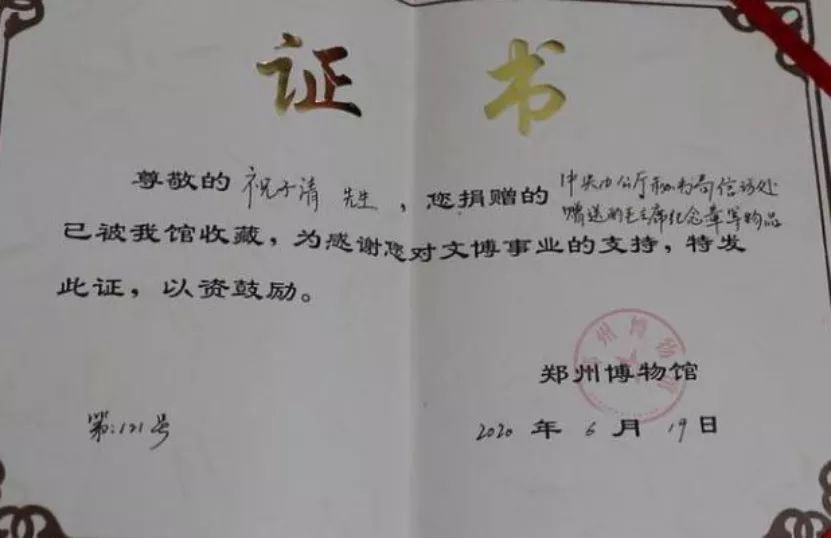 证书
尊敬的 祝子清 先生，您捐赠的 中央办公厅秘书局信访处
赠送的毛主席纪念章等物品
已被我馆收藏，为感谢您对文博事业的支持，特发
此证，以资鼓励。
郑州博物馆
郑州博物馆
第：121号
2020 年 6 月 19 日